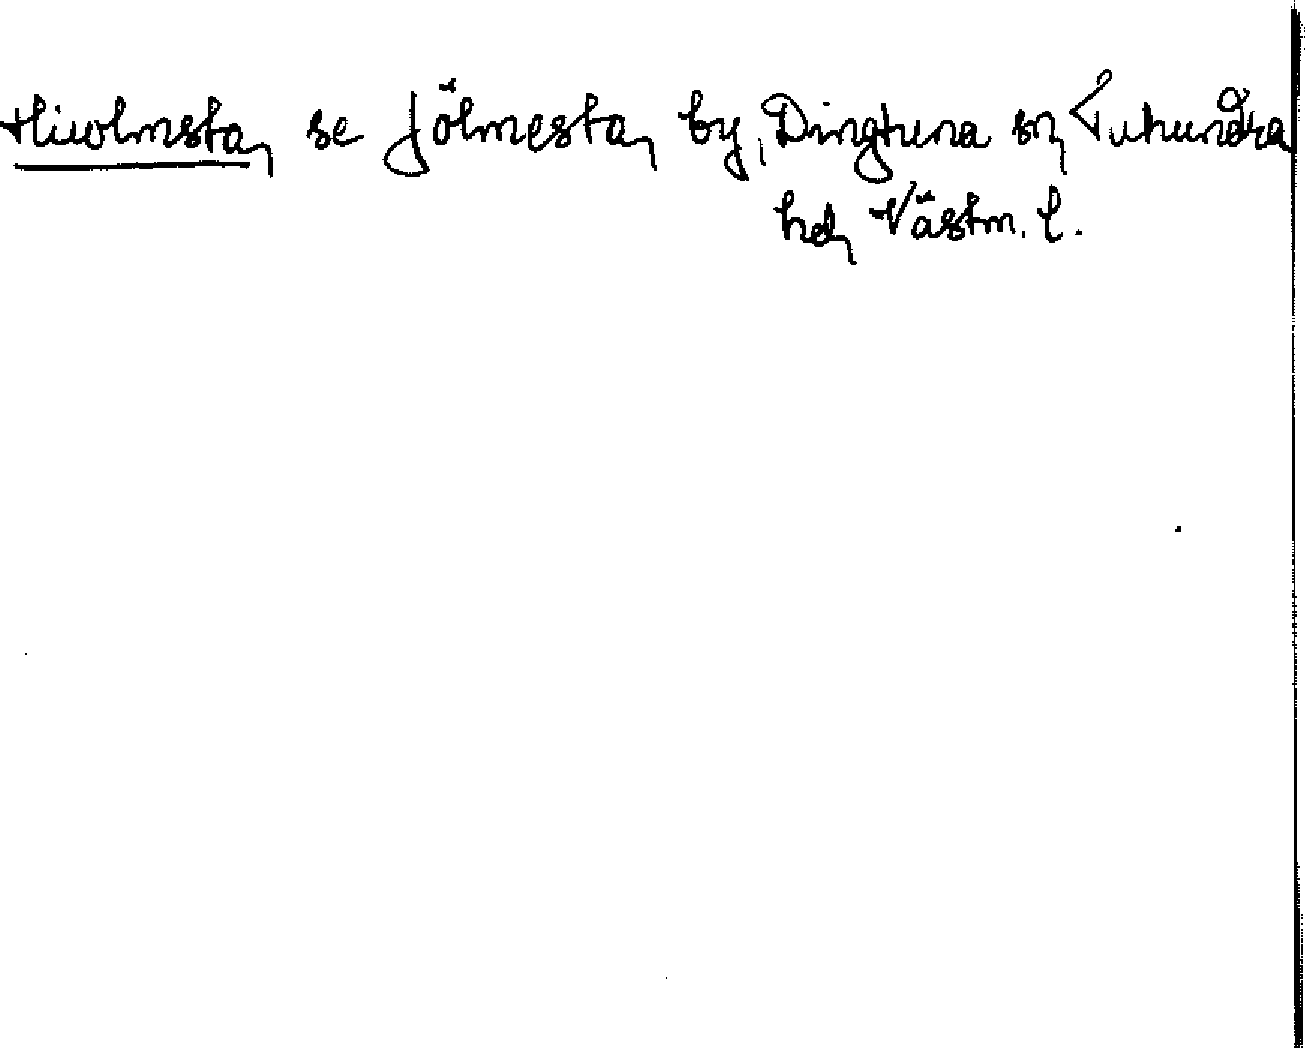 Hiwolmsta, se Jölmesta, by, Dingtuna sn, Tuhundra
hd, Västm. l.